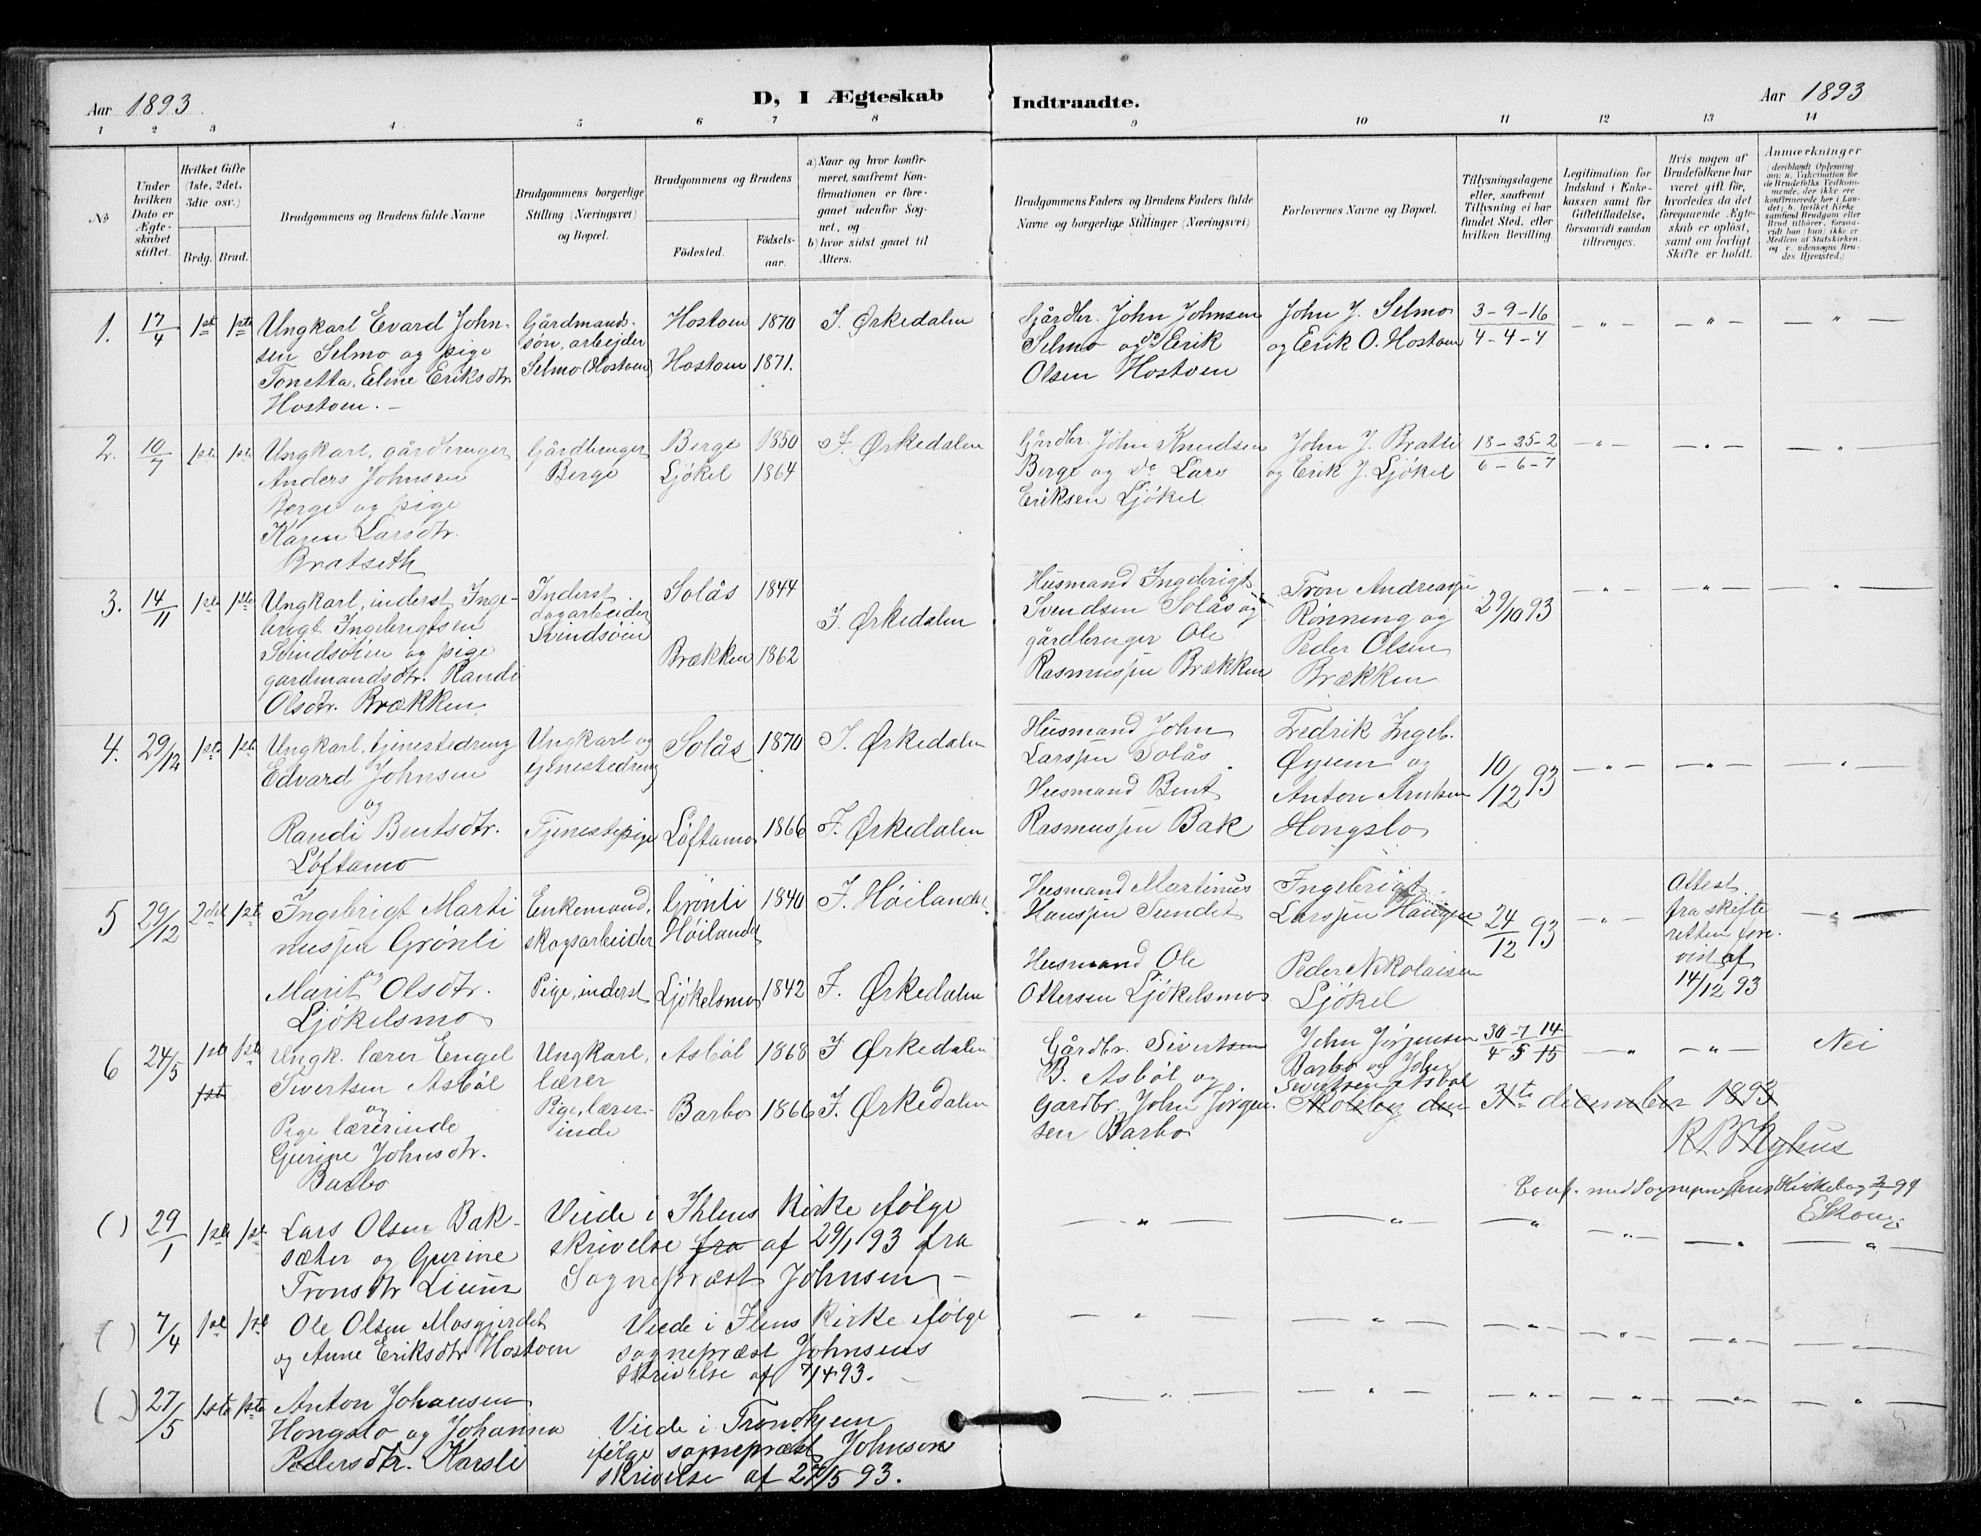 Aar 1893
D, I Ægteskab Indtraadte.
Aar 1893
1 2 3 4 5 6 7 8 9 10 11 12 13 14
No
Under hvilken Dato er Ægteskabet stiftet.
Hvilket Gifte (1ste, 2det, 3die osr.)
Brdg. Brud.
Brudgommens og Brudens fulde Navne
Brudgommens borgerlige Stilling (Næringsvei) og Bopæl.
Brudgommens og Brudens
Fødested.
Fødsels-aar.
a) Naar og hvor konfirmeret, saafremt Konfirmationen er foregaaet udenfor Sognet, og
b) hvor sidst gaaet til Alters.
Brudgommens Faders og Brudens Faders fulde Navne og borgerlige Stillinger (Næringsvei)
Forlovernes Navne og Bopæl.
Tillysningsdagene eller, saafremt Tillysning ei har fundet Sted, efter hvilken Bevilling
Legitimation for Indskud i Enkekassen samt for Giftetilladelse, forsaavidt saadan tiltrænges.
Hvis nogen af Brudefolkene har været gift før, hvorledes da det foregaaende Ægteskab er opløst, samt om lovligt Skifte er holdt.
Anmærkninger
(deriblandt Oplysning om: a. Vakcination for de Brudefolks Vedkommende, der ikke ere konfirmerede her i Landet; b. hvilket Kirkesamfund Brudgom eller Brud tilhører, forsaavidt han (hun) ikke er Medlem af Statskirken, og c. udensogns Brudes Hjemsted.)
1. 17/4 1ste 1ste
Ungkarl Evard John-
sen Selmo og pige
Tonetta Eline Eriksdtr.
Hostoen. –
Gårdmands-
søn, arbejder
Selmo (Hostoen)
Hostoen 1870
Hostoen 1871.
I. Ørkedalen
Gårdbr. John Johnsen
Selmo og do Erik
Olsen Hostoen
John J. Selmo
og Erik O. Hostoen
3-9-16
4-4-4
–"– –"– –"–
2. 10/7 1ste 1ste
Ungkarl, gårdbruger
Anders Johnsen
Berge og pige
Karen Larsdtr.
Bratseth
Gårdbruger
Berge
Berge 1850
Ljökel 1864
I. Ørkedalen
Gårdbr. John Knudsen
Berge og do Lars
Eriksen Ljökel
John J. Bratli
og Erik J. Ljökel
18-25-2
6-6-7
–"– –"– –"–
3. 14/11 1ste 1ste
Ungkarl, inderst Inge-
brigt Ingebrigtsen
Svindsöien og pige
gardmandsdtr. Randi
Olsdtr. Brækken
Inderst
dagarbeider
Svindsöien
Solås 1844
Brækken 1862
I. Ørkedalen
Husmand Ingebrigt
Svendsen Solås og
gårdbruger Ole
Rasmussen Brækken
Tron Andreassen
Rönning og
Peder Olsen
Brækken
29/10 93
–"– –"– –"–
4. 29/12 1ste 1ste
Ungkarl, tjenestedreng
Edvard Johnsen
og
Randi Bentsdtr.
Löftamo
Ungkarl og
tjenestedreng
Tjenestepige
Solås 1870
Löftamo 1866
I. Ørkedalen
I. Ørkedalen
Husmand John
Larssen Solås
Husmand Bent
Rasmussen Bak
Fredrik Ingeb.
Öysen og
Anton Arntsen
Hongslo
10/12 93
–"– –"– –"–
5 29/12 2det 1ste
Ingebrigt Marti
nussen Grönli
og
Marit Olsdtr.
Ljökelsmo
Enkemand,
skogsarbeider
Pige, inderst
Grönli 1840
Höilandet
Ljökelsmo 1842
I. Höilandet
I. Ørkedalen
Husmand Martinus
Hanssen Sundet
Husmand Ole
Ottersen Ljökelsmo
Ingebrigt
Larssen Haugen
Peder Nikolaisen
Ljökel
24/12 93
–"–
Attest
fra skifte
retten fore-
vist af
14/12 93
–"–
6 24/5 1ste 1ste
1ste
Ungk. lærer Engel
Sivertsen Asböl
og
Pige lærerinde
Gurine Johnsdtr.
Barbo
Ungkarl,
lærer
Pige, lærer-
inde
Asböl 1868
Barbo 1866
I Ørkedalen
I. Ørkedalen
Gårdbr. Sivertsen
B. Asböl og
Gardbr. John Jörgen-
sen Barbo
John Jörgensen
Barbo og John
Sivertsen Asböl
30-7-14
4-5-15
–"– –"– Nei
den 31te december 1893
Conf. med Sognepræstens Kirkebog 3/1 99
ESkou
() 29/1 1ste 1ste
Lars Olsen Bak-
sæter og Gurine
Tronsdtr Lium
Viede i Ihlens Kirke ifölge
skrivelse fra af 29/1 93 fra
Sognepræst Johnsen –
–"– –"– –"– –"– –"– –"–
( ) 7/4 1ste 1ste
Ole Olsen Mosgjerdet
og Anne Eriksdtr Hostoen
Viede i Ilens Kirke ifölge
sognepræst Johnsens
skrivelse af 7/4 93. –
–"– –"– –"– –"– –"– –"–
( ) 27/5 1ste 1ste
Anton Johansen
Hongslo og Johanna
Pedersdtr. Karsli
Viede i Trondhjem
ifölge sognepræst Johnsens
skrivelse af 27/5 93.
–"– –"– –"– –"– –"– –"–